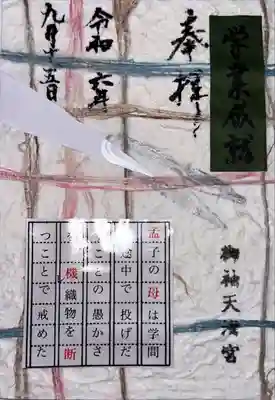 学業成就
奉拝
令和六年
九月十五日
御袖天満宮
孟子の母は学問
途中で投げだ
ことの愚かさ
機織物を断
つことで戒めた